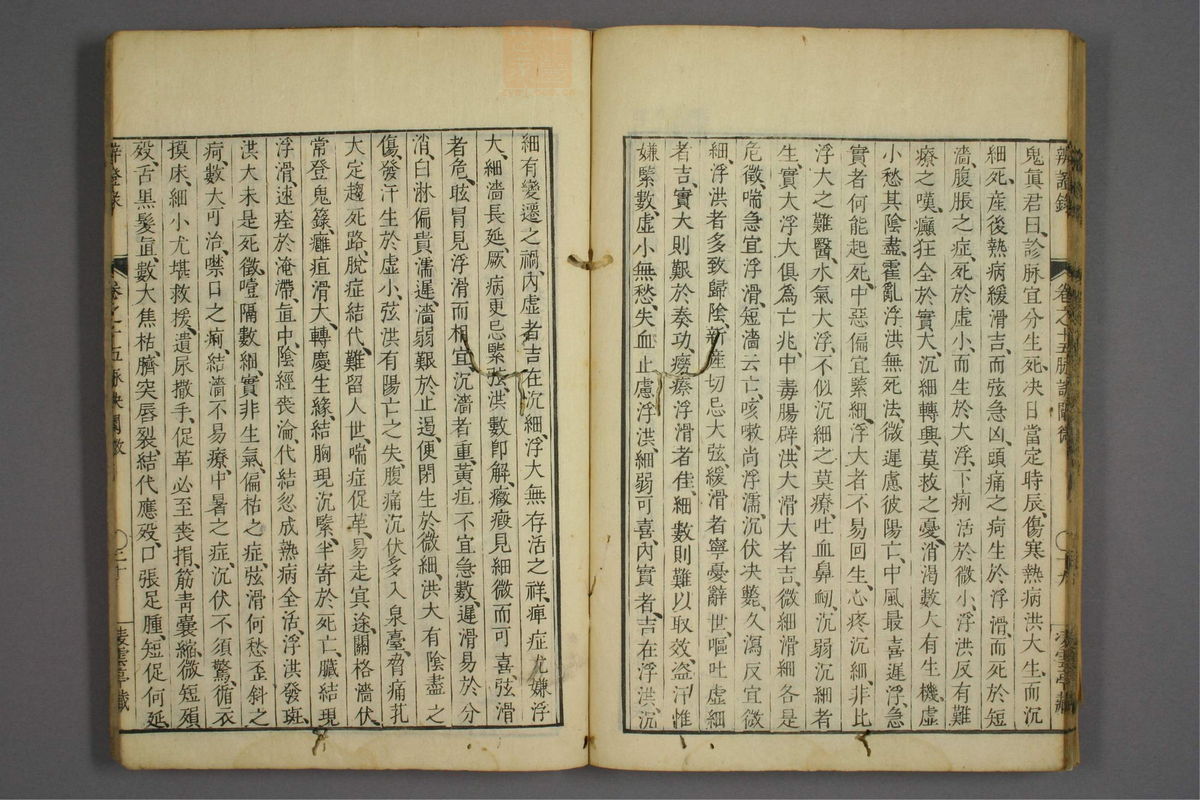 鬼眞君曰、診脉宜分生死、决日當定時辰、傷寒熱病洪大生而沉
細死、産後熱病緩滑吉、而弦急凶、頭痛之疴生於浮滑、而死於短
濇、腹脹之症、死於虛小、而生於大浮、下痢活於微小、浮洪反有難
療之嘆、癲狂全於實大、沉細轉興莫救之憂、消渴數大有生機、虛
小愁其陰盡、霍亂浮洪無死法、微遲慮彼陽亡、中風最喜遲浮、急
實者何能起死、中惡偏宜緊細、浮大者不易回生、心疼沉細、非比
浮大之難醫、水氣大浮、不似沉細之莫療、吐血鼻衂、沉弱沉細者
生、實大浮大俱爲亡兆、中毒腸辟、洪大滑大者吉、微細滑細各是
危徵、喘急宜浮滑、短濇云亡、咳嗽尚浮濡、沉伏决斃、久瀉反宜微
細、浮洪者多致歸陰、新産切忌大弦、緩滑者寧憂辭世、嘔吐虛細
者吉、實大則艱於奏功、癆瘵浮滑者佳、細數則難以取效、盗汗惟
嫌緊數、虛小無愁、失血止慮浮洪、細弱可喜、内實者、吉在浮洪、沉
卷之十五脉訣闡微
細有變遷之禍、内虛者吉在沉細、浮大無存活之祥、痺症尤嫌浮
大、細濇長延、厥病更忌緊弦、洪數卽解、癥瘕見細微而可喜、弦滑
者危、眩冒見浮滑而相宜、沉濇者重、黄疸不宜急數、遲滑易於分
消、白淋偏貴濡遲、濇弱艱於止遏、便閉生於微細、洪大有陰盡之
傷、發汗生於虛小、弦洪有陽亡之失、腹痛沉伏、多入泉臺、脅痛芤
大、定趨死路、脫症結代、難留人世、喘症促革、易走冥途、關格濇伏、
常登鬼籙、癰疽滑大、轉慶生緣、結胸現沉緊、半寄於死亡、臟結現
浮滑、速痊於淹滯、疸中陰經喪淪、代結忽成熱病全活、浮洪發斑、
洪大未是死徵、噎隔數細、實非生氣、偏枯之症、弦滑何愁、歪斜之
疴、數大可治、噤口之痢、結濇不易療、中暑之症、沉伏不須驚、循衣
摸床、細小尤堪救援、遺尿撒手、促革必至喪捐、筋靑囊縮、微短殞
歿、舌黒髮直、數大焦枯、臍突唇裂、結代應歿、口張足腫、短促何延
辨證錄
卷之十五脉訣闡微